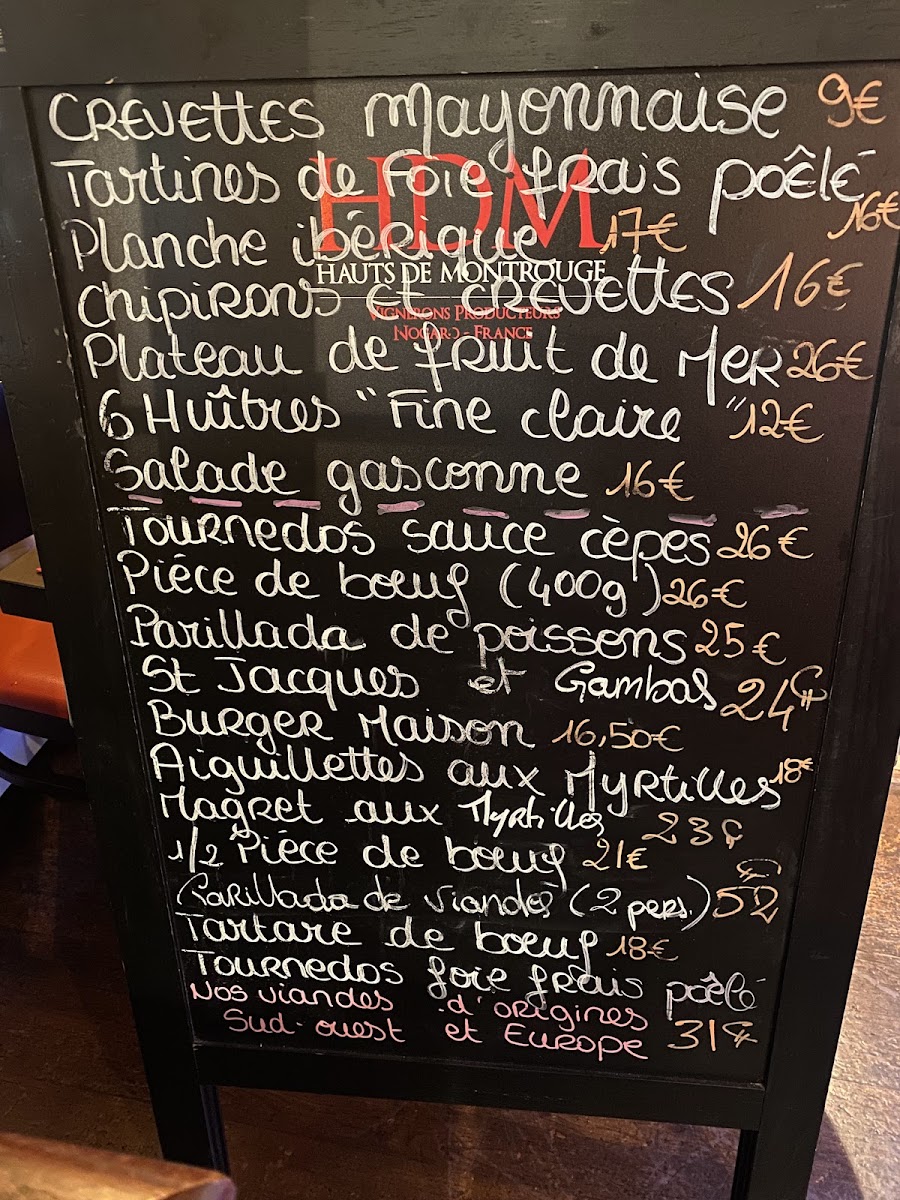 CREVETTES mayonnaise 9€
Tartines de Foie frais poêlé
16€
Planche ibérique 17€
HDM
HAUTS DE MONTROUGE
chipirons et CREVETTES 16€
VIGNERONS PRODUCTEURS
NOGARO - FRANCE
Plateau de fruit de MER 26€
6 Huîtres "Fine claire" 12€
Salade gasconne 16€
Tournedos sauce cèpes 26€
Piéce de boeuf (400g) 26€
Parillada de poissons 25€
St Jacques et Gambas 24€
Burger Maison 16,50€
Aiguillettes aux Myrtilles 18€
Magret aux Myrtilles 23€
1/2 Piéce de boeuf 21€
Parillada de viandes (2 pers.) 52€
Tartare de boeuf 18€
Tournedos foie frais poêlé
Nos viandes d'origines
Sud-ouest et Europe 31€